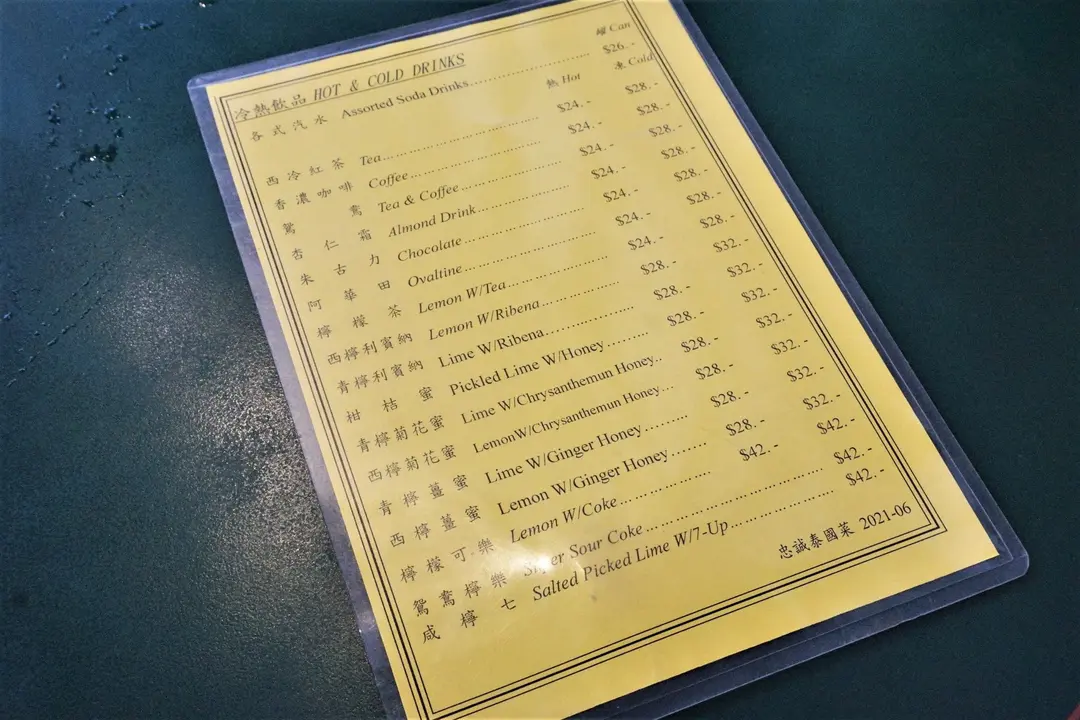 罐 Can
冷熱飲品 HOT & COLD DRINKS
各式汽水 Assorted Soda Drinks.......................... $26.-
熱 Hot 凍 Cold
西冷紅茶 Tea.......................... $24.- $28.-
香濃咖啡 Coffee.......................... $24.- $28.-
鴛鴦 Tea & Coffee.......................... $24.- $28.-
杏仁霜 Almond Drink.......................... $24.- $28.-
朱古力 Chocolate.......................... $24.- $28.-
阿華田 Ovaltine.......................... $24.- $28.-
檸檬茶 Lemon W/Tea.......................... $24.- $28.-
西檸利賓納 Lemon W/Ribena.................. $28.- $32.-
青檸利賓納 Lime W/Ribena.................. $28.- $32.-
柑桔蜜 Pickled Lime W/Honey............ $28.- $32.-
青檸菊花蜜 Lime W/Chrysanthemun Honey.. $28.- $32.-
西檸菊花蜜 LemonW/Chrysanthemun Honey... $28.- $32.-
青檸薑蜜 Lime W/Ginger Honey......... $28.- $32.-
西檸薑蜜 Lemon W/Ginger Honey....... $28.- $32.-
檸檬可樂 Lemon W/Coke.................. $42.- $42.-
鴛鴦檸樂 Super Sour Coke.......................... $42.-
咸檸七 Salted Picked Lime W/7-Up.................. $42.-
忠誠泰國菜 2021-06